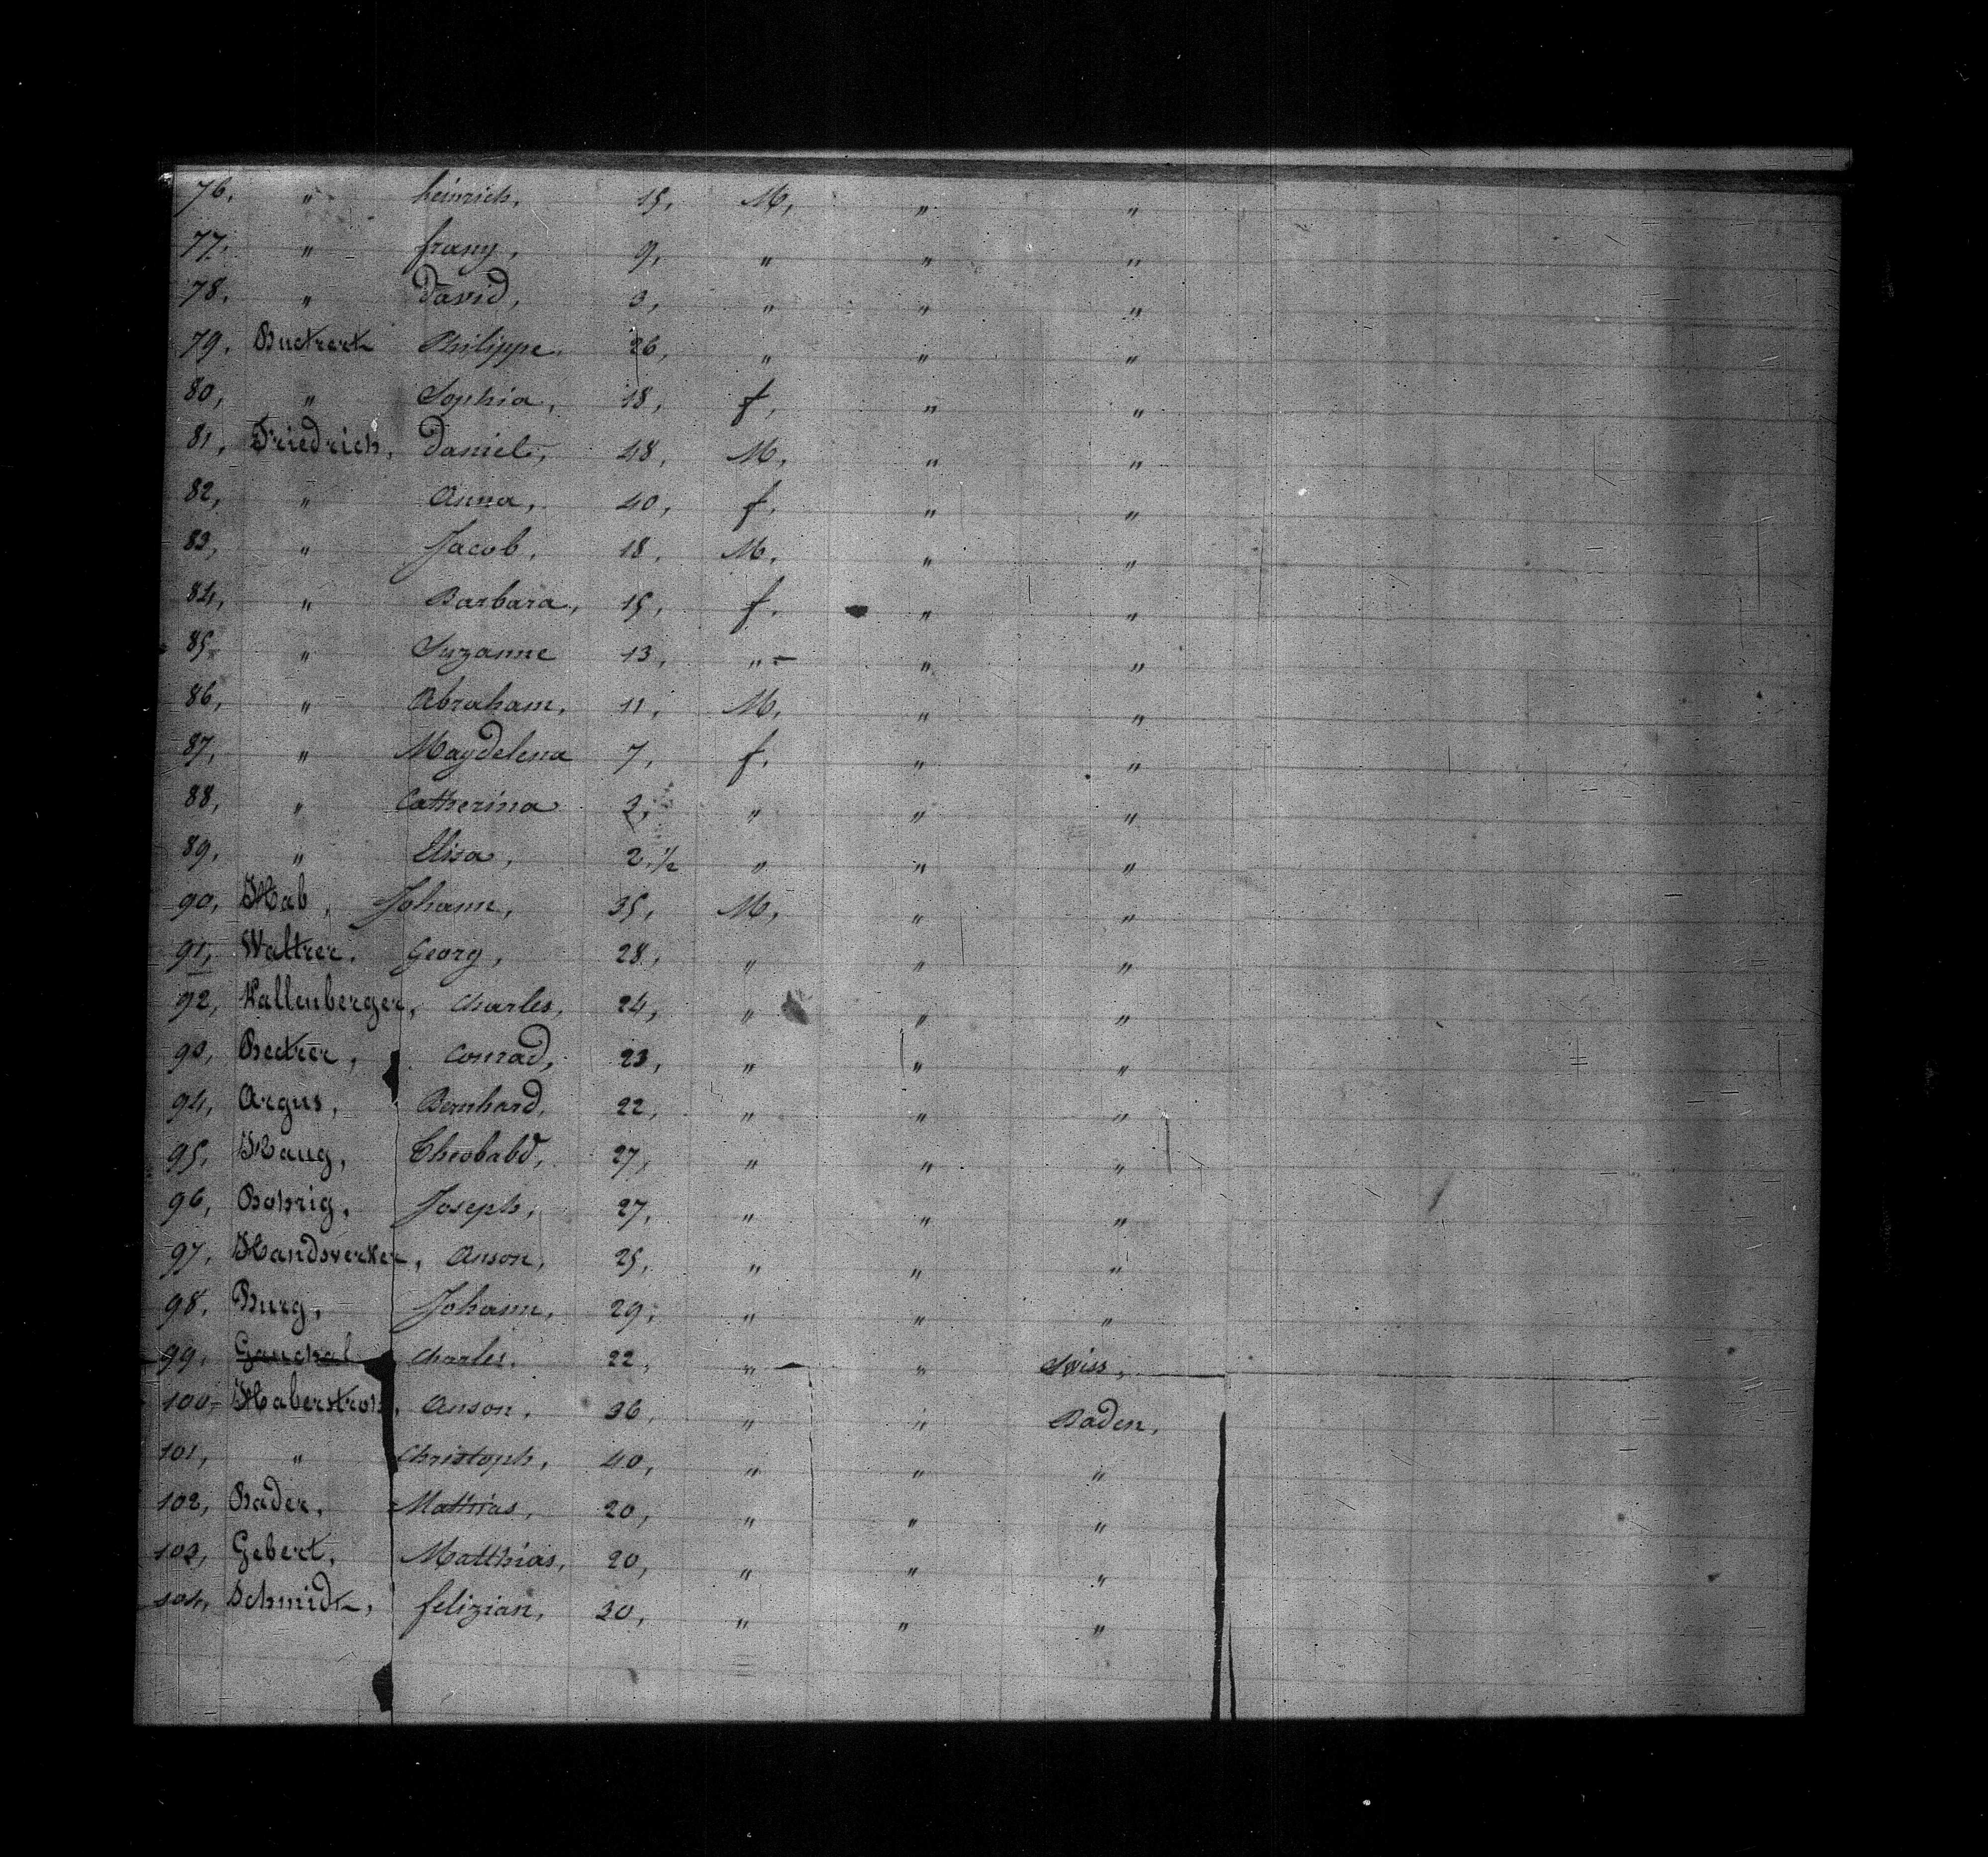 76, " heinrich, 15, M, " "
77, " frany, 9, " " "
78, " David, 3, " " "
79, Buckert Philippe, 26, " " "
80, " Sophia, 18, f, " "
81, Friedrich, Daniel, 48, M, " "
82, " Anna, 40, f, " "
83, " Jacob, 18, M, " "
84, " Barbara, 15, f, " "
85, " Suzanne 13, " " "
86, " Abraham, 11, M, " "
87, " Magdelena 7, f, " "
88, " Catherina " " "
89, " Elisa, 2 1/2 " " "
90, Hab, Johann, 35, M, " "
91, Walker, Georg, 28, " " "
92, Kallenberger, Charles, 24, " " "
93, Becker, Conrad, 23, " " "
94, Argus, Bernhard, 22, " " "
95, Haug, Theobald, 27, " " "
96, Bohrig, Joseph, 27, " " "
97, Handwerker, Anson, 25, " " "
98, Burg, Johann, 29, " " "
99, Charles, 22, " " Swiss,
100, Haberstroh, Anson, 36, " " Baden,
101, " Christoph, 40, " " "
102, Bader, Mathias, 20, " " "
103, Gebert, Matthias, 20, " " "
104, Schmidt, felizian, 30, " " "